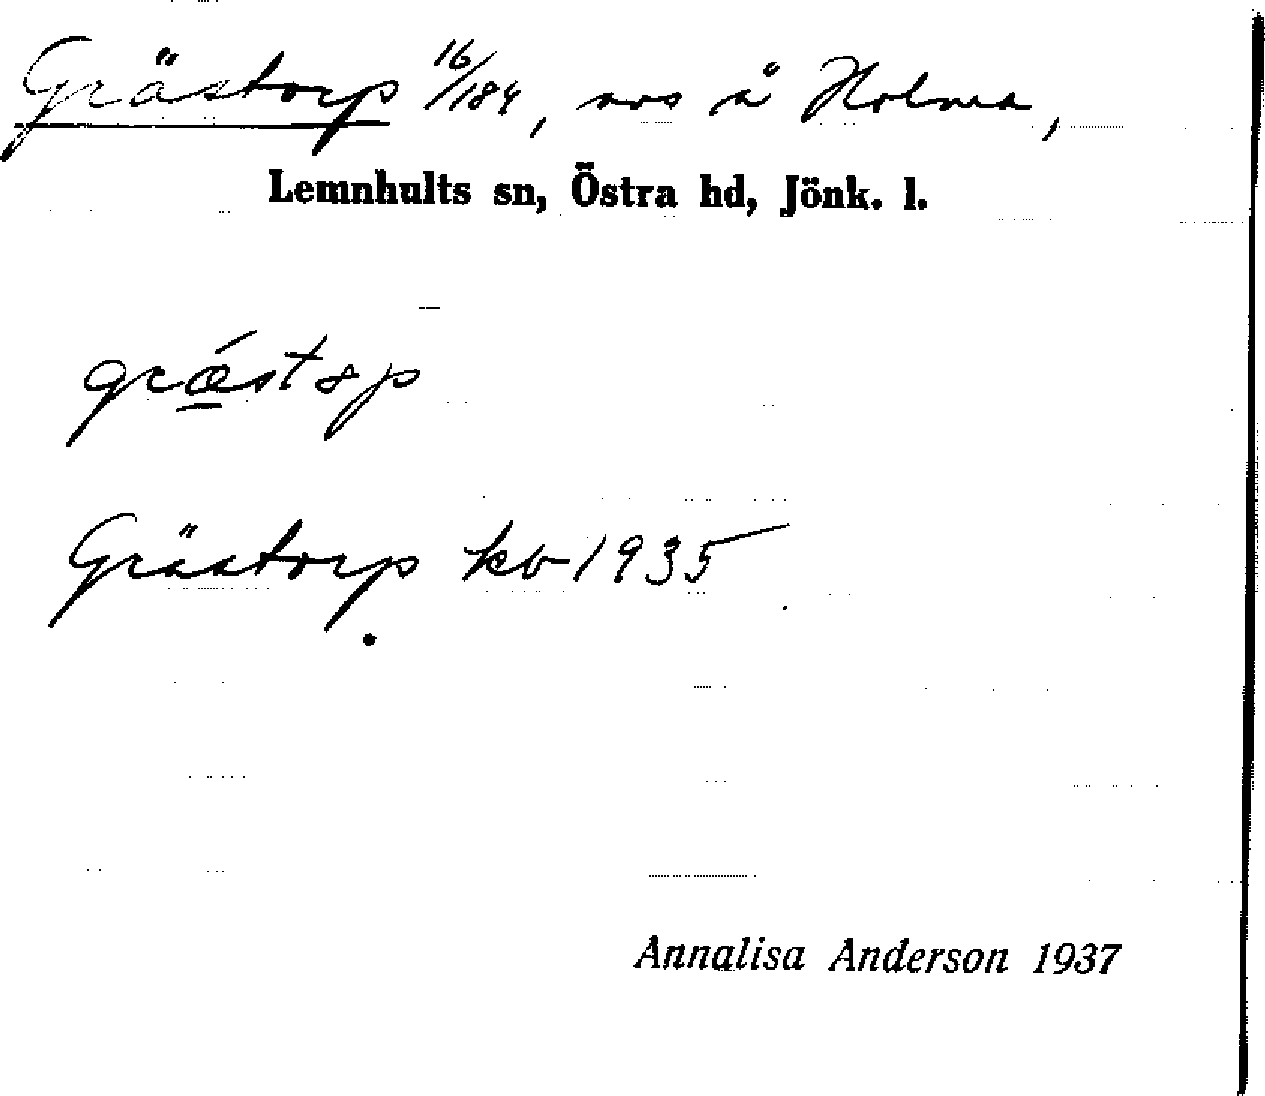 Grästorp 16/184, avs å Holma,
Lemnhults sn, Östra hd, Jönk. l.
grǽstɞp
Grästorp kb 1935
Annalisa Anderson 1937